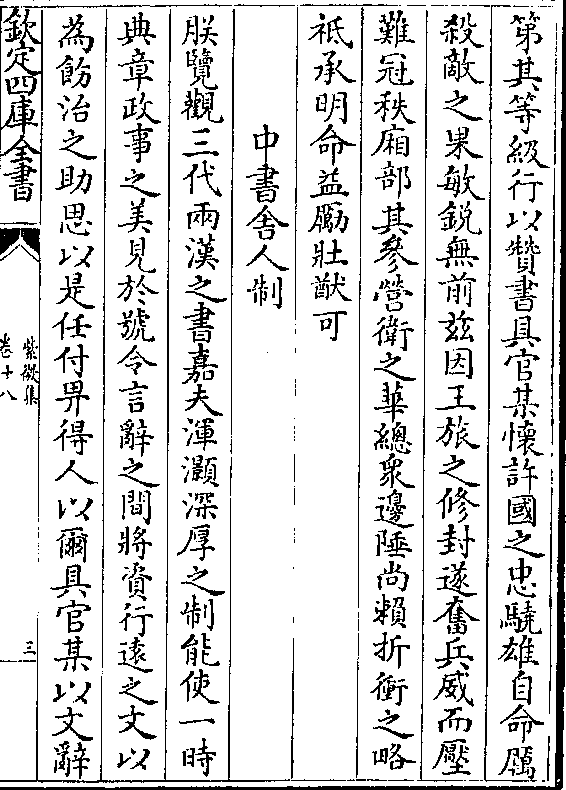 第其等級行以贊書具官某懷許國之忠驍雄自命厲
殺敵之果敏銳無前兹因王旅之修封遂奮兵威而壓
難冠秩廂部其參營衛之華總衆邊陲尚賴折衝之略
祇承明命益勵壯猷可
中書舍人制
朕覽觀三代兩漢之書嘉夫渾灝深厚之制能使一時
典章政事之美見於號令言辭之間將資行遠之文以
為飭治之助思以是任付畀得人以爾具官某以文辭
欽定四庫全書
紫微集
卷十八
三